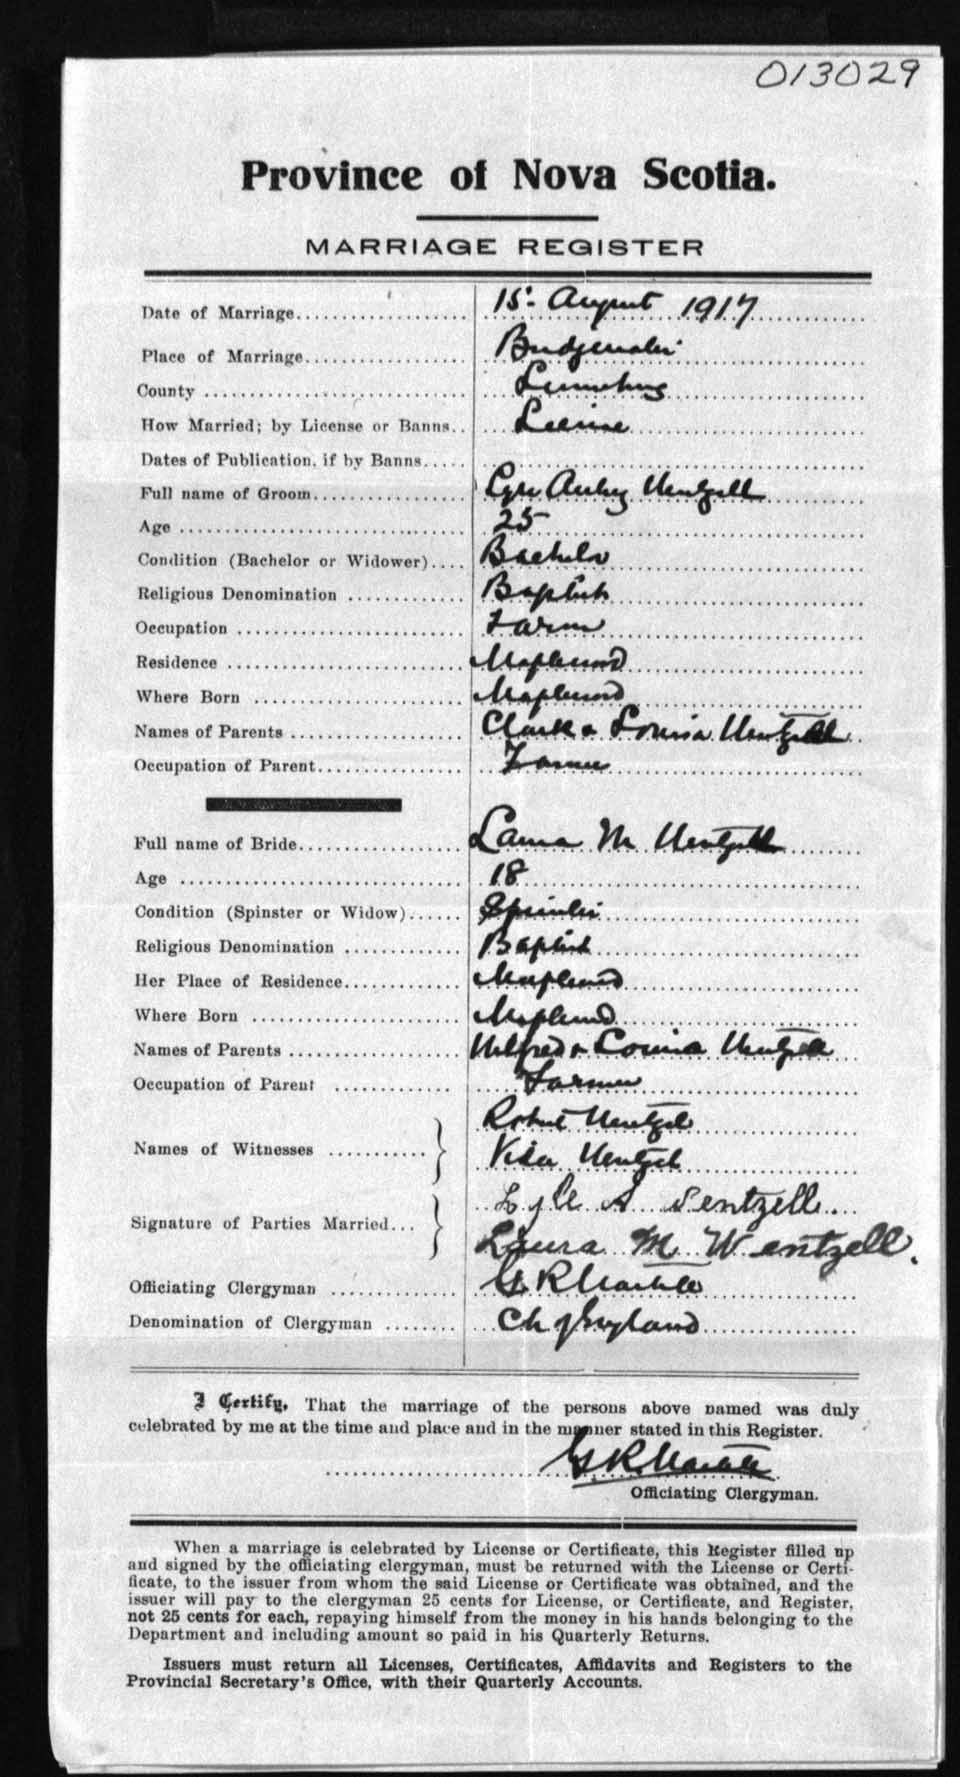 013029
Province of Nova Scotia.
MARRIAGE REGISTER
Date of Marriage 15. August 1917
Place of Marriage Bridgewater
County Lunenburg
How Married; by License or Banns License
Dates of Publication, if by Banns
Full name of Groom Lyle Wentzell
Age 25
Condition (Bachelor or Widower) Bachelor
Religious Denomination Baptist
Occupation Farmer
Residence Maplewood
Where Born Maplewood
Names of Parents Clark & Louisa Wentzell
Occupation of Parent Farmer
Full name of Bride Laura M Wentzell
Age 18
Condition (Spinster or Widow) Spinster
Religious Denomination Baptist
Her Place of Residence Maplewood
Where Born Maplewood
Names of Parents Wilfred & Louisa Wentzell
Occupation of Parent Farmer
Names of Witnesses } Robert Wentzel
Vida Wentzel
Signature of Parties Married } Lyle A Wentzell.
Laura M Wentzell.
Officiating Clergyman G R Martell
Denomination of Clergyman Ch of England
I Certify, That the marriage of the persons above named was duly
celebrated by me at the time and place and in the manner stated in this Register.
G R Martell
Officiating Clergyman.
When a marriage is celebrated by License or Certificate, this Register filled up
and signed by the officiating clergyman, must be returned with the License or Certi-
ficate, to the issuer from whom the said License or Certificate was obtained, and the
issuer will pay to the clergyman 25 cents for License, or Certificate, and Register,
not 25 cents for each, repaying himself from the money in his hands belonging to the
Department and including amount so paid in his Quarterly Returns.
Issuers must return all Licenses, Certificates, Affidavits and Registers to the
Provincial Secretary's Office, with their Quarterly Accounts.